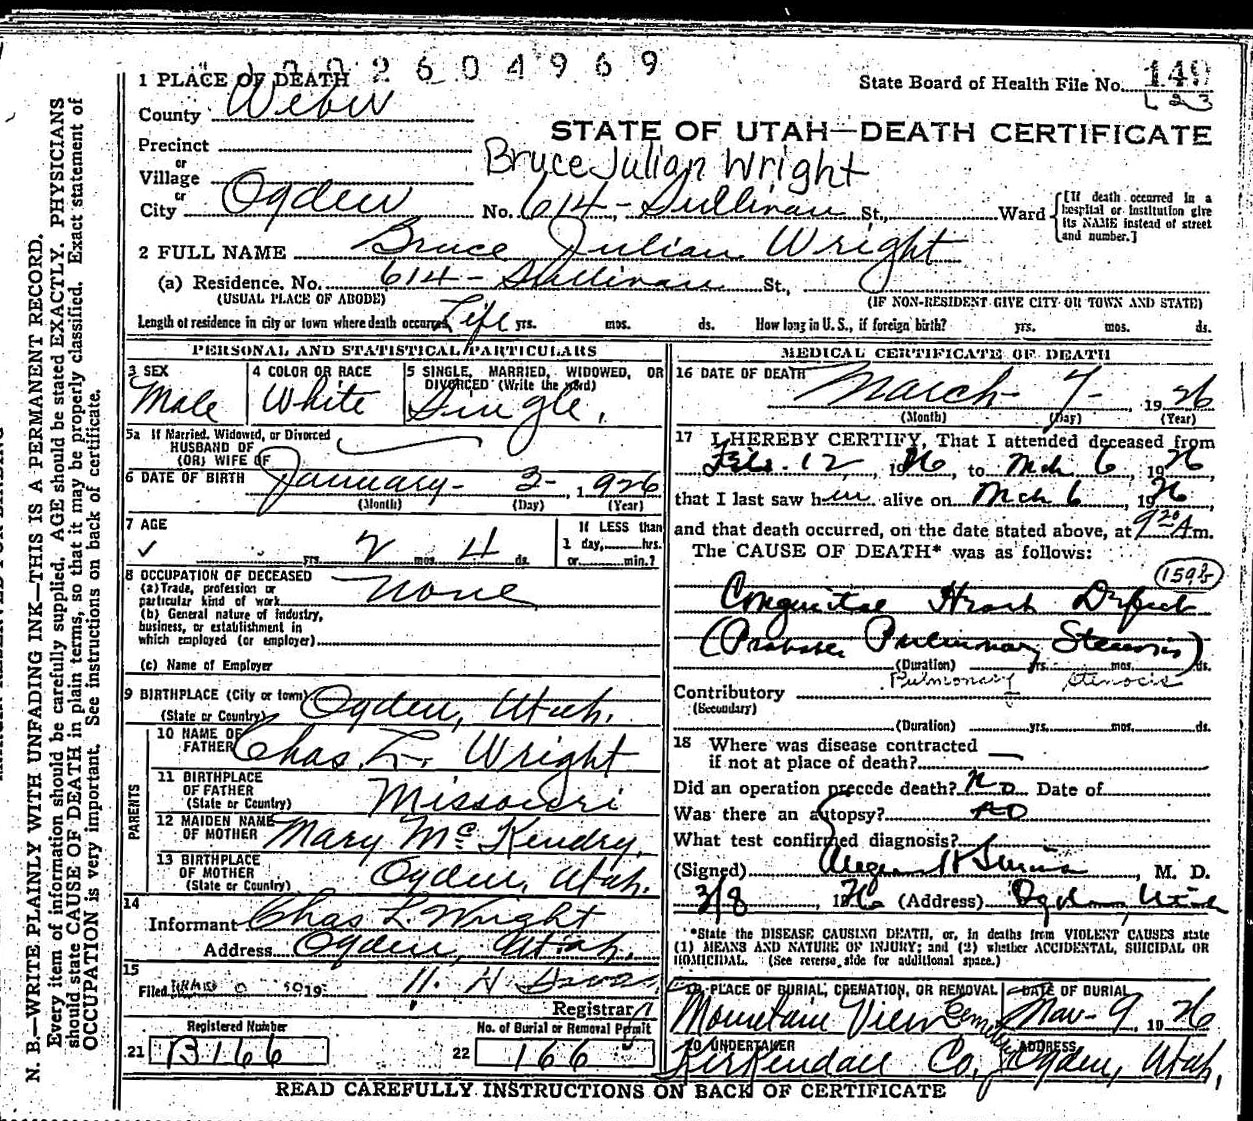 2604969
1 PLACE OF DEATH
State Board of Health File No. 149
County Weber
STATE OF UTAH—DEATH CERTIFICATE
Precinct
Bruce Julian Wright
or
Village
or
City Ogden No. 614 - Sullivan St., Ward [If death occurred in a hospital or institution give its NAME instead of street and number.]
2 FULL NAME Bruce Julian Wright
(a) Residence. No. 614 - Sullivan St.,
(USUAL PLACE OF ABODE) (IF NON-RESIDENT GIVE CITY OR TOWN AND STATE)
Length of residence in city or town where death occurred Life yrs. mos. ds. How long in U. S., if foreign birth? yrs. mos. ds.
PERSONAL AND STATISTICAL PARTICULARS
3 SEX Male
4 COLOR OR RACE White
5 SINGLE, MARRIED, WIDOWED, OR DIVORCED (Write the word) Single.
5a If Married, Widowed, or Divorced
HUSBAND OF
(OR) WIFE OF
6 DATE OF BIRTH January - 3 - 1926
(Month) (Day) (Year)
7 AGE
yrs. 2 mos. 4 ds.
If LESS than
1 day, hrs.
or min.?
8 OCCUPATION OF DECEASED
(a) Trade, profession or
particular kind of work none
(b) General nature of industry,
business, or establishment in
which employed (or employer)
(c) Name of Employer
9 BIRTHPLACE (City or town) Ogden, Utah.
(State or Country)
PARENTS
10 NAME OF
FATHER Chas. L. Wright
11 BIRTHPLACE
OF FATHER Missouri
(State or Country)
12 MAIDEN NAME
OF MOTHER Mary McKendry.
13 BIRTHPLACE
OF MOTHER Ogden, Utah.
(State or Country)
14
Informant Chas L. Wright
Address Ogden, Utah.
15
Filed 19
Registrar
Registered Number
21 B166
No. of Burial or Removal Permit
22 166
MEDICAL CERTIFICATE OF DEATH
16 DATE OF DEATH March - 7 - 1926
(Month) (Day) (Year)
17 I HEREBY CERTIFY, That I attended deceased from
Feb. 12, 1926, to Mch 6, 1926
that I last saw him alive on Mch 6, 1926
and that death occurred, on the date stated above, at 9 20 A.m.
The CAUSE OF DEATH* was as follows:
Congenital Heart Defect
(Probable Pulmonary Stenosis)
(Duration) yrs. mos. ds.
Pulmonary Stenosis
Contributory
(Secondary)
(Duration) yrs. mos. ds.
18 Where was disease contracted
if not at place of death?
Did an operation precede death? No Date of
Was there an autopsy? No
What test confirmed diagnosis?
(Signed) M. D.
3/8, 1926 (Address) Ogden, Utah
*State the DISEASE CAUSING DEATH, or, in deaths from VIOLENT CAUSES state
(1) MEANS AND NATURE OF INJURY; and (2) whether ACCIDENTAL, SUICIDAL OR
HOMICIDAL. (See reverse side for additional space.)
19 PLACE OF BURIAL, CREMATION, OR REMOVAL
Mountain View Cemetery
DATE OF BURIAL
Mar - 9, 1926
20 UNDERTAKER
Kirkendall Co.,
ADDRESS
Ogden, Utah,
READ CAREFULLY INSTRUCTIONS ON BACK OF CERTIFICATE
N. B.—WRITE PLAINLY WITH UNFADING INK—THIS IS A PERMANENT RECORD.
Every item of information should be carefully supplied. AGE should be stated EXACTLY. PHYSICIANS
should state CAUSE OF DEATH in plain terms, so that it may be properly classified. Exact statement of
OCCUPATION is very important. See instructions on back of certificate.